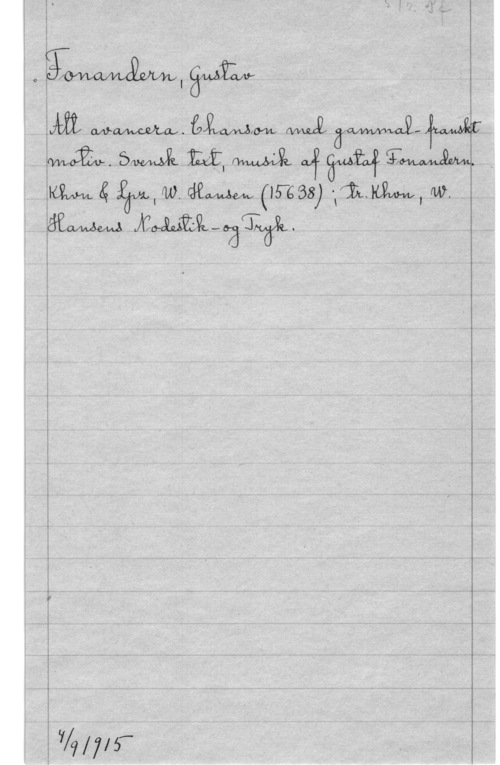 Fonandern, Gustav
Att avancera. Chanson med gammal-franskt
motiv. Svensk text, musik af Gustaf Fonandern.
Khvn & Lpz, W. Hansen (15638) ; tr. Khvn, W.
Hansens Nodestik-og Tryk.
4/9 1915